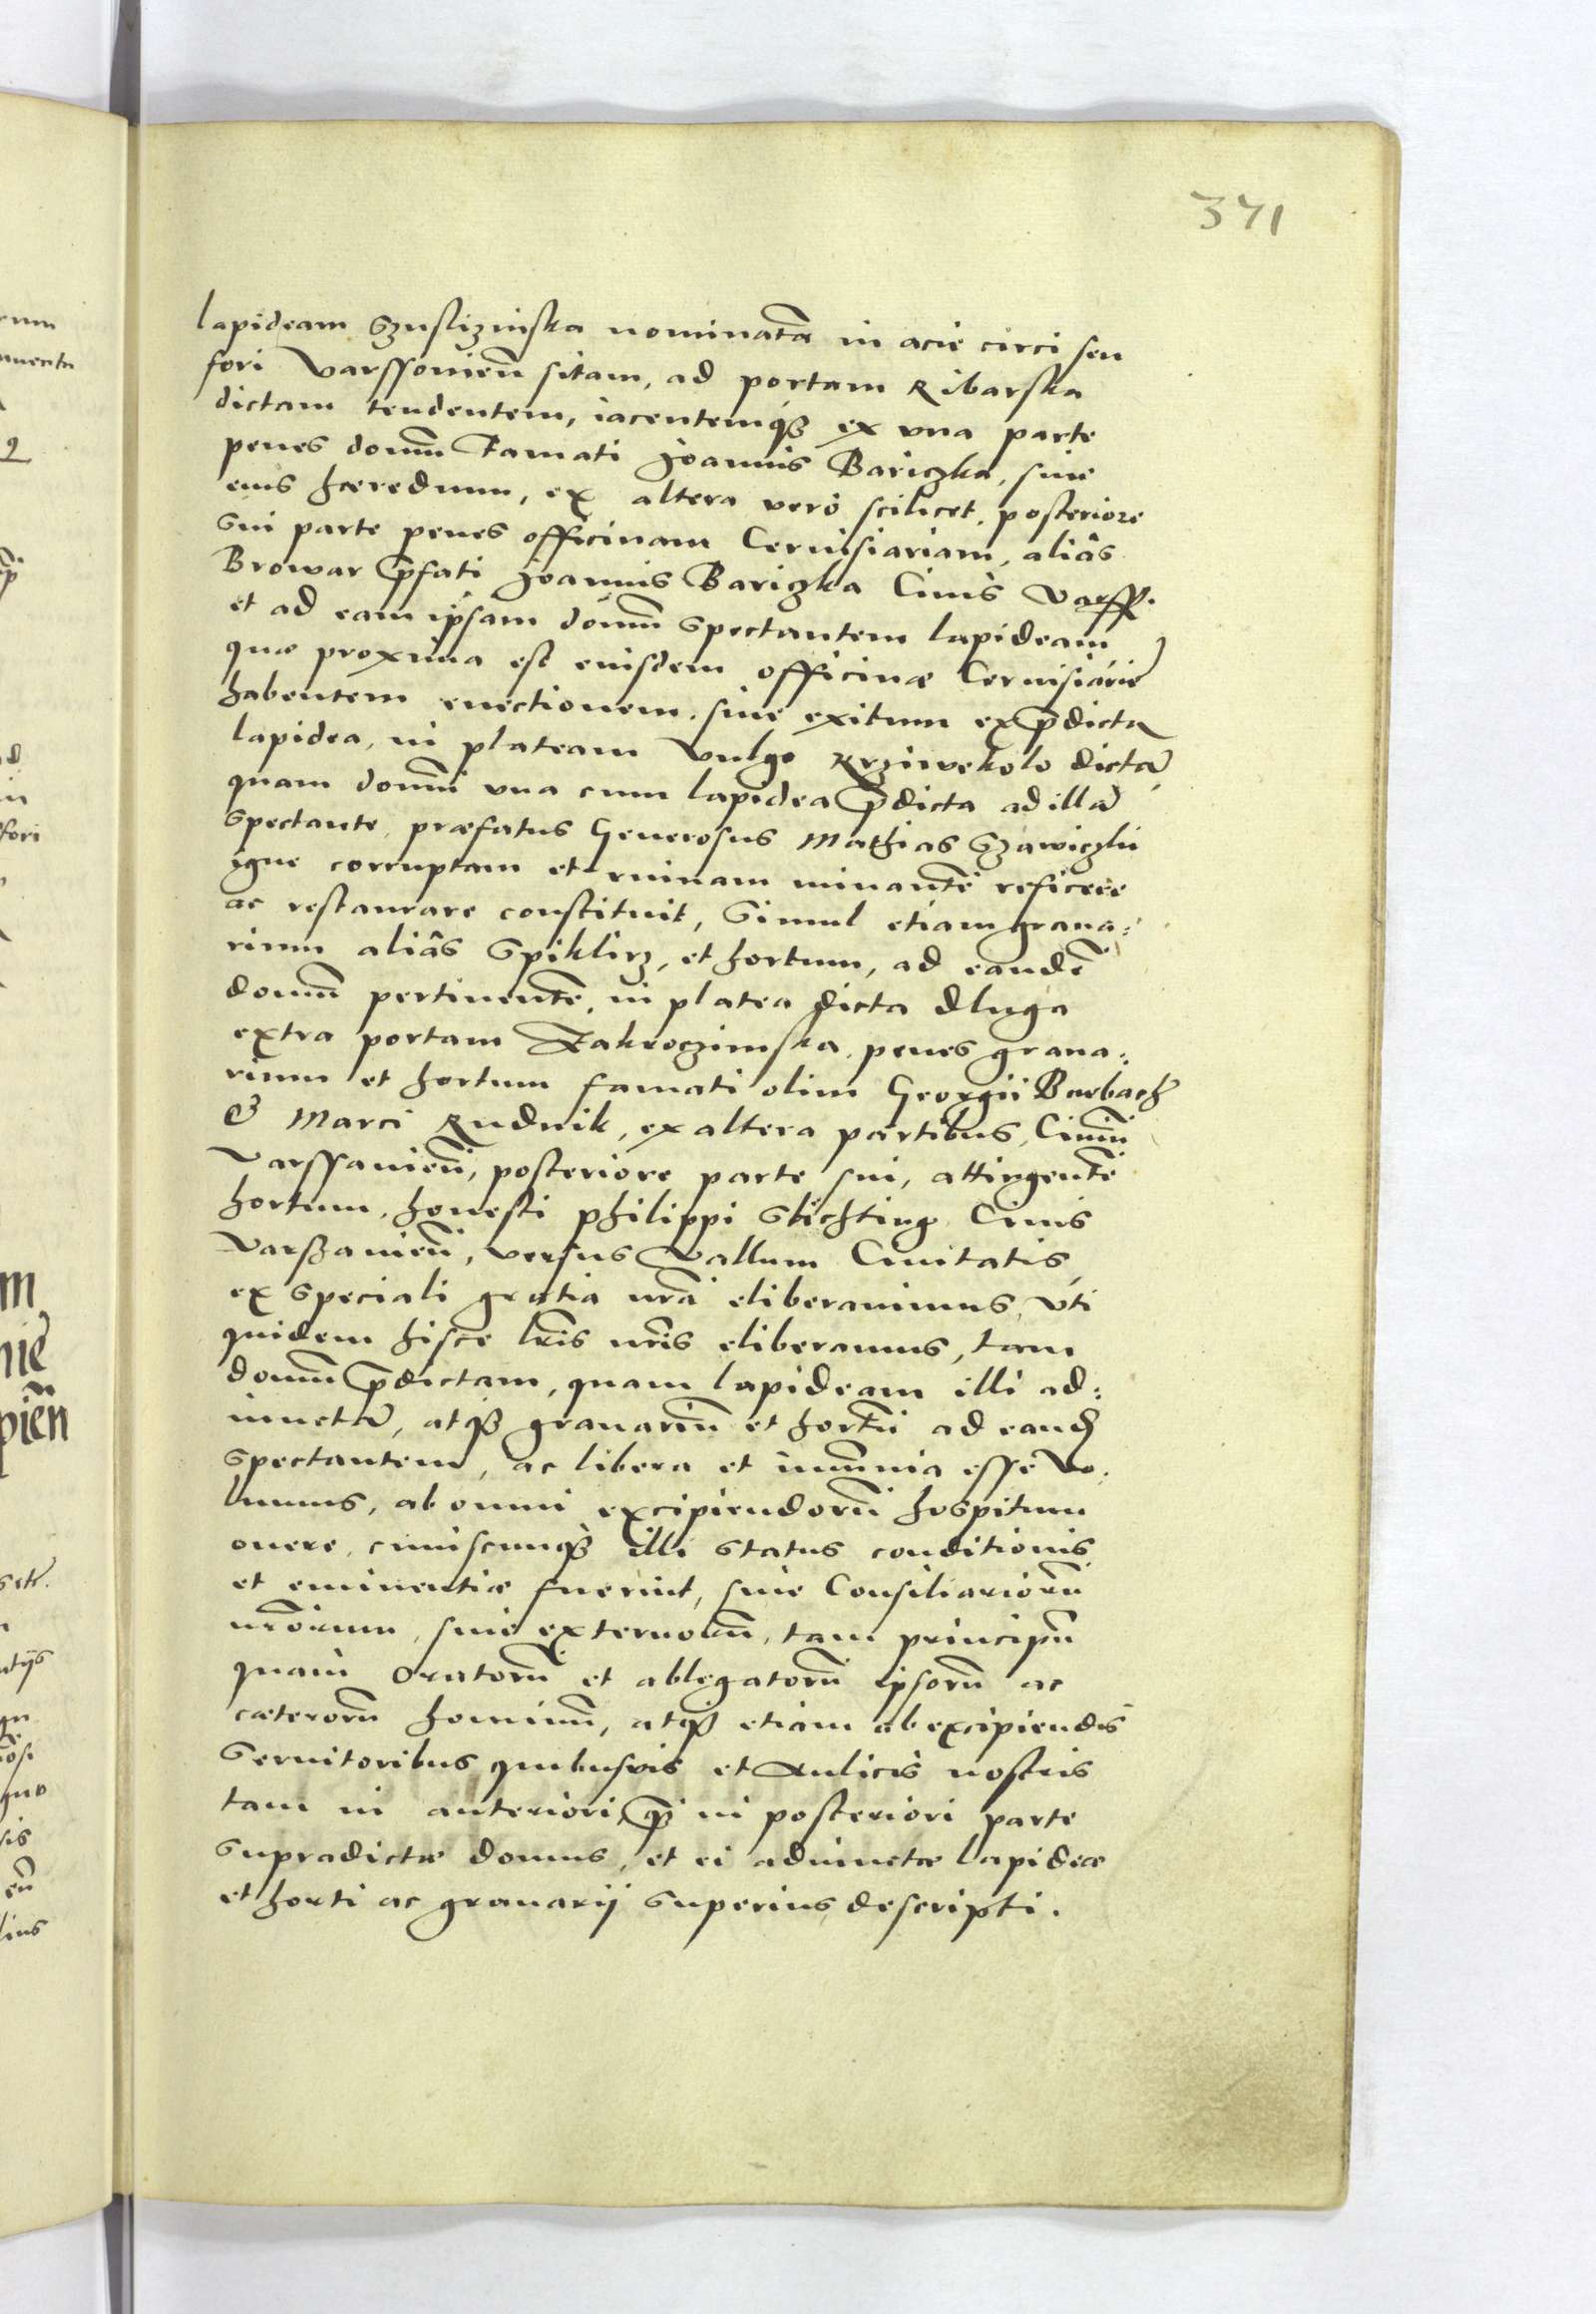 371
lapideam Szuslizinska nominatã in acie circi seu
fori Varssovień sitam, ad portam Ribarska
dictam tendentem, iacentemq₃ ex vna parte
penes domũ Famati Joannis Bariczka, siue
eius hæredum, ex altera verò scilicet, posteriore
sui parte penes officinam Ceruisiariam, aliâs
Browar p̃fati Joannis Bariczka Ciuis Varss.
et ad eam ipsam domũ spectantem lapideam
quæ proxima est eiusdem officinæ Ceruisiariæ
habentem euectionem, siue exitum ex p̃dicta
lapidea, in plateam vulgo Krziwekolo dictã
quam domũ vna cum lapidea p̃dicta ad illã
spectante, præfatus Generosus Mathias Szawiczki
igne corruptam et ruinam minantẽ reficere
ac restaurare constituit, Simul etiam grana:
rium aliâs Spiklirz, et hortum, ad eandẽ
domũ pertinentẽ, in platea dicta dluga
extra portam Zakroczimska, penes grana:
rium et hortum famati olim Georgii Burbach
& Marci Rudnik, ex altera partibus, Ciuiũ
Varssauień, posteriore parte sui, attingentẽ
hortum, honesti philippi Stichting Ciuis
Varszauień, versus Vallum Ciuitatis,
ex speciali gratia nr̃a eliberauimus, vti
quidem hisce lr̃is nr̃is eliberamus, tam
domũ p̃dictam, quam lapideam illi ad:
iunctã, atq₃ granariũ et hortũ ad eand̃
spectantem, ac libera et immũnia esse vo:
lumus, ab omni excipiendorũ hospitum
onere, cuiuscunq₃ illi status conditionis
et eminentiæ fuerint, siue Consiliariorũ
nr̃orum, siue externorũ, tam principũ
quàm Oratorũ et ablegatorũ ipsorũ ac
cæterorũ hominũ, atq₃ etiam ab excipiendis
Seruitoribus quibusuis et Aulicis nostris
tam in anteriori, q̃ in posteriori parte
supradictæ domus, et ei adiunctæ lapideæ
et horti ac granarij superius descripti.